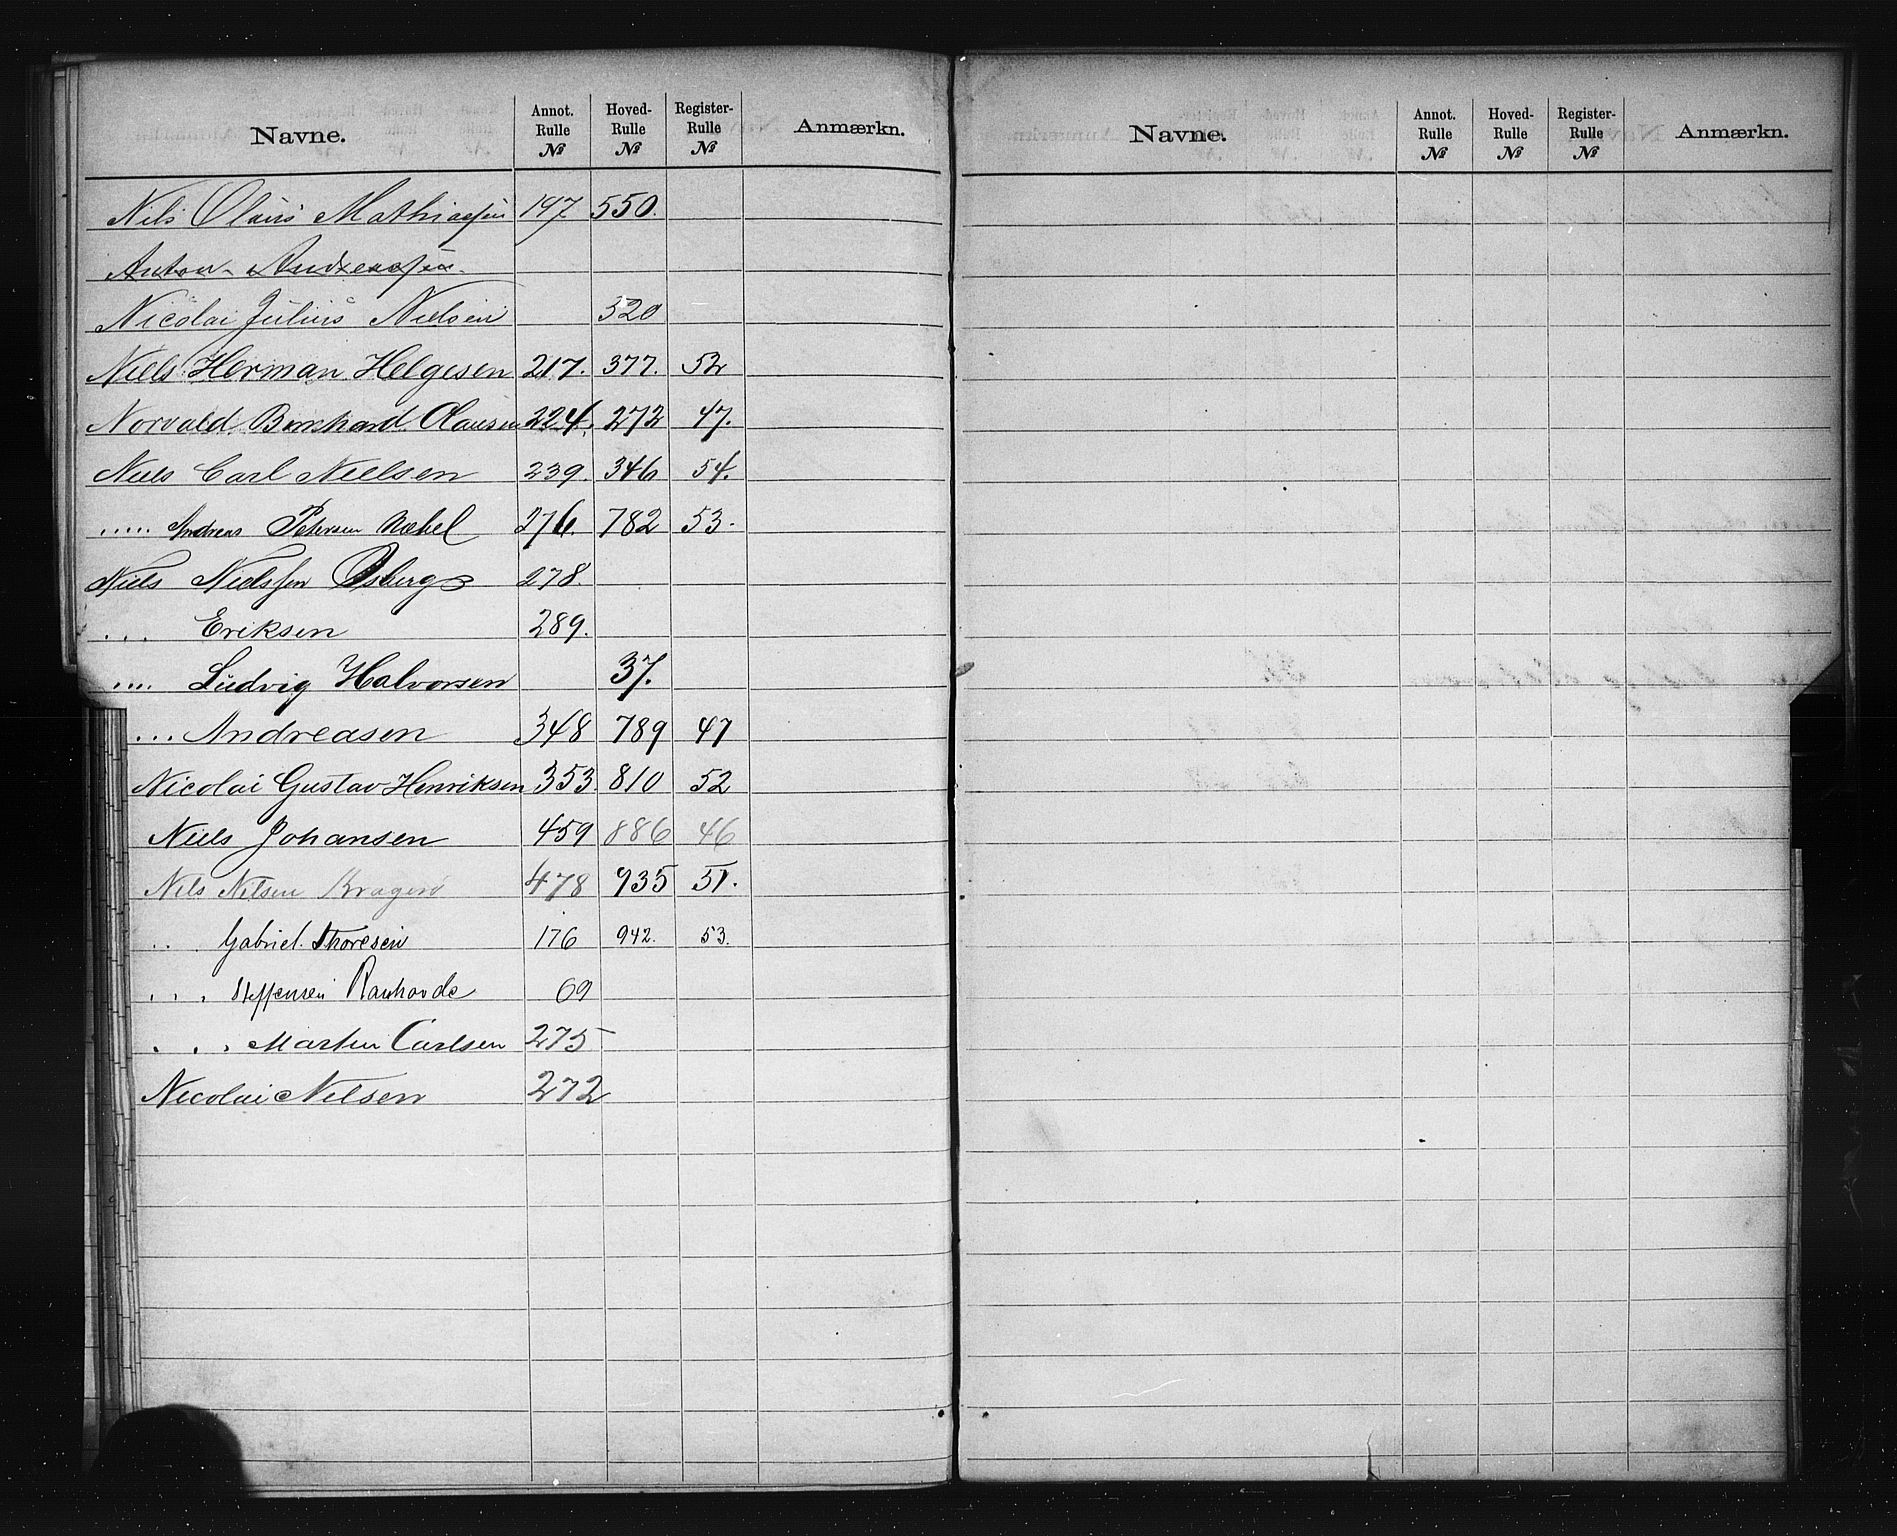 Navne. Annot. Rulle № Hoved- Rulle № Register- Rulle № Anmærkn.
Nils Olaus Mathiassen 197 550.
Anton Andreassen
Nicolai Julius Nielsen 520
Niels Herman Helgesen 217. 377. 52
Norvald Bernhard Olausen 224. 272 47.
Niels Carl Nielsen 239. 346 54.
..... Andreas Petersen Næbel 276. 782 53.
Niels Nielssen Osberg 278.
... Eriksen 289.
.... Ludvig Halvorsen 37.
... Andreasen 348 789 47
Nicolai Gustav Henriksen 353. 810 52
Niels Johansen 459 886 46
Nils Nilsen Kragerø 478 935 51.
.. Gabriel Thoresen 176 942. 53.
... Steffensen Rauhovde 69
... Martin Carlsen 275
Nicolai Nilsen 272
Navne. Annot. Rulle № Hoved- Rulle № Register- Rulle № Anmærkn.